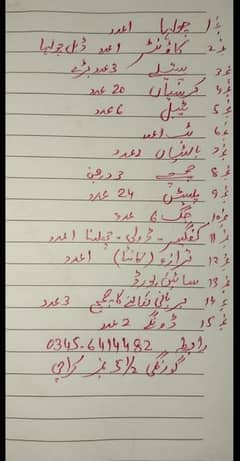 نمبر 1 چولہا 1 عدد
نمبر 2 کاؤنٹر 1 عدد ڈبل چولہا
نمبر 3 پتیلے 3 عدد بڑے
نمبر 4 کرسیاں 20 عدد
نمبر 5 ٹیبل 6 عدد
نمبر 6 ٹب 1 عدد
نمبر 7 بالٹیاں 2 عدد
نمبر 8 چمچے 3 درجن
نمبر 9 پلیٹیں 24 عدد
نمبر 10 جگ 6 عدد
نمبر 11 کفگیر - ڈوئی - چھلنا 1 عدد
نمبر 12 ترازو (کانٹا) 1 عدد
نمبر 13 سائن بورڈ
نمبر 14 بریانی نکالنے کا چمچ 3 عدد
نمبر 15 ڈونگے 2 عدد
رابطہ 0345-6414482
کورنگی 5 1/2 نمبر کراچی